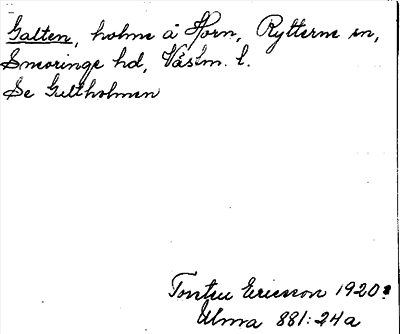 Galten, holme å Horn, Rytterne sn,
Snevringe hd, Västm. l.
Se Gultholmen
Torsten Ericsson 1920?
Ulma 881:24a